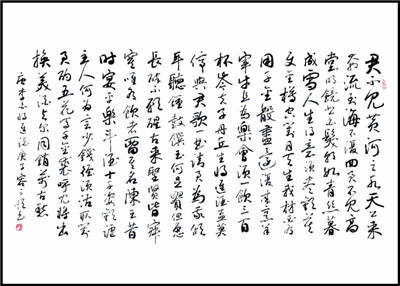 君不見黃河之水天上來
奔流到海不復回君不見高
堂明鏡悲白髮朝如青絲暮
成雪人生得意須盡歡莫
使金樽空對月天生我材必有
用千金散盡還復來烹羊
宰牛且為樂會須一飲三百
杯岑夫子丹丘生將進酒杯莫
停與君歌一曲請君為我傾
耳聽鐘鼓饌玉何足貴但願
長醉不願醒古來聖賢皆寂
寞唯有飲者留其名陳王昔
時宴平樂斗酒十千恣歡謔
主人何為言少錢徑須沽取對
君酌五花馬千金裘呼兒將出
換美酒與爾同銷萬古愁
唐李白將進酒庚子